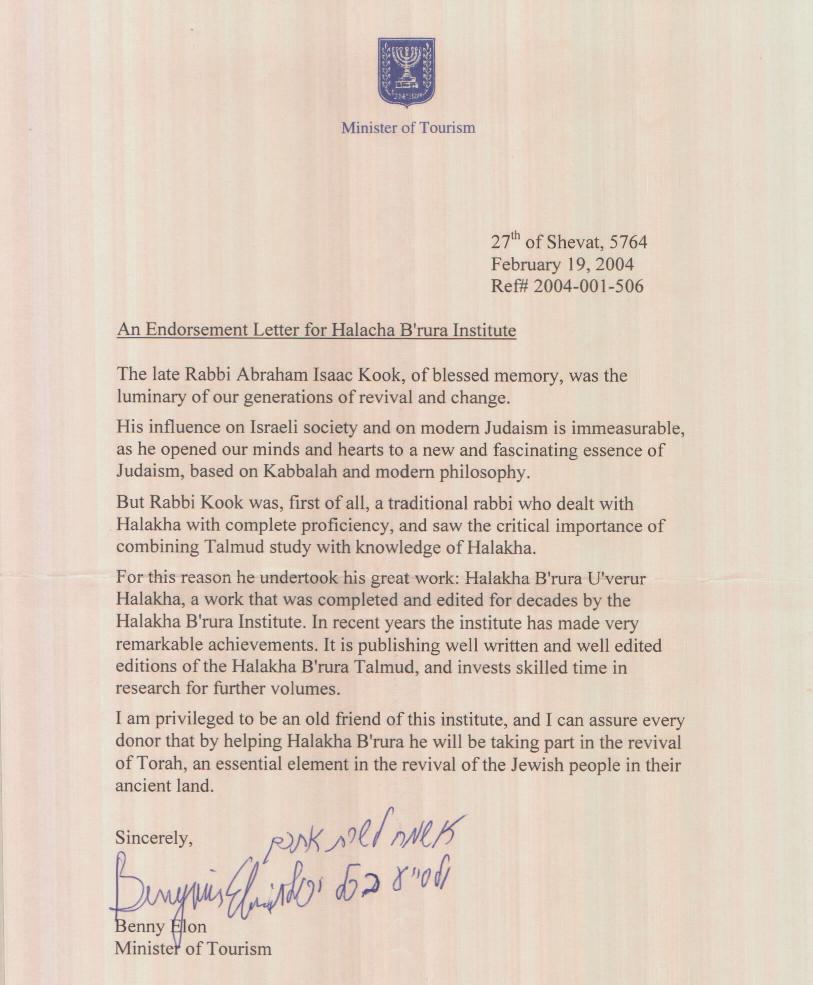 Minister of Tourism
27th of Shevat, 5764
February 19, 2004
Ref# 2004-001-506
An Endorsement Letter for Halacha B'rura Institute
The late Rabbi Abraham Isaac Kook, of blessed memory, was the
luminary of our generations of revival and change.
His influence on Israeli society and on modern Judaism is immeasurable,
as he opened our minds and hearts to a new and fascinating essence of
Judaism, based on Kabbalah and modern philosophy.
But Rabbi Kook was, first of all, a traditional rabbi who dealt with
Halakha with complete proficiency, and saw the critical importance of
combining Talmud study with knowledge of Halakha.
For this reason he undertook his great work: Halakha B'rura U'verur
Halakha, a work that was completed and edited for decades by the
Halakha B'rura Institute. In recent years the institute has made very
remarkable achievements. It is publishing well written and well edited
editions of the Halakha B'rura Talmud, and invests skilled time in
research for further volumes.
I am privileged to be an old friend of this institute, and I can assure every
donor that by helping Halakha B'rura he will be taking part in the revival
of Torah, an essential element in the revival of the Jewish people in their
ancient land.
Sincerely,
אשמח לשרת אתכם
ולסייע בכל יכולתי
Benny Elon
Minister of Tourism